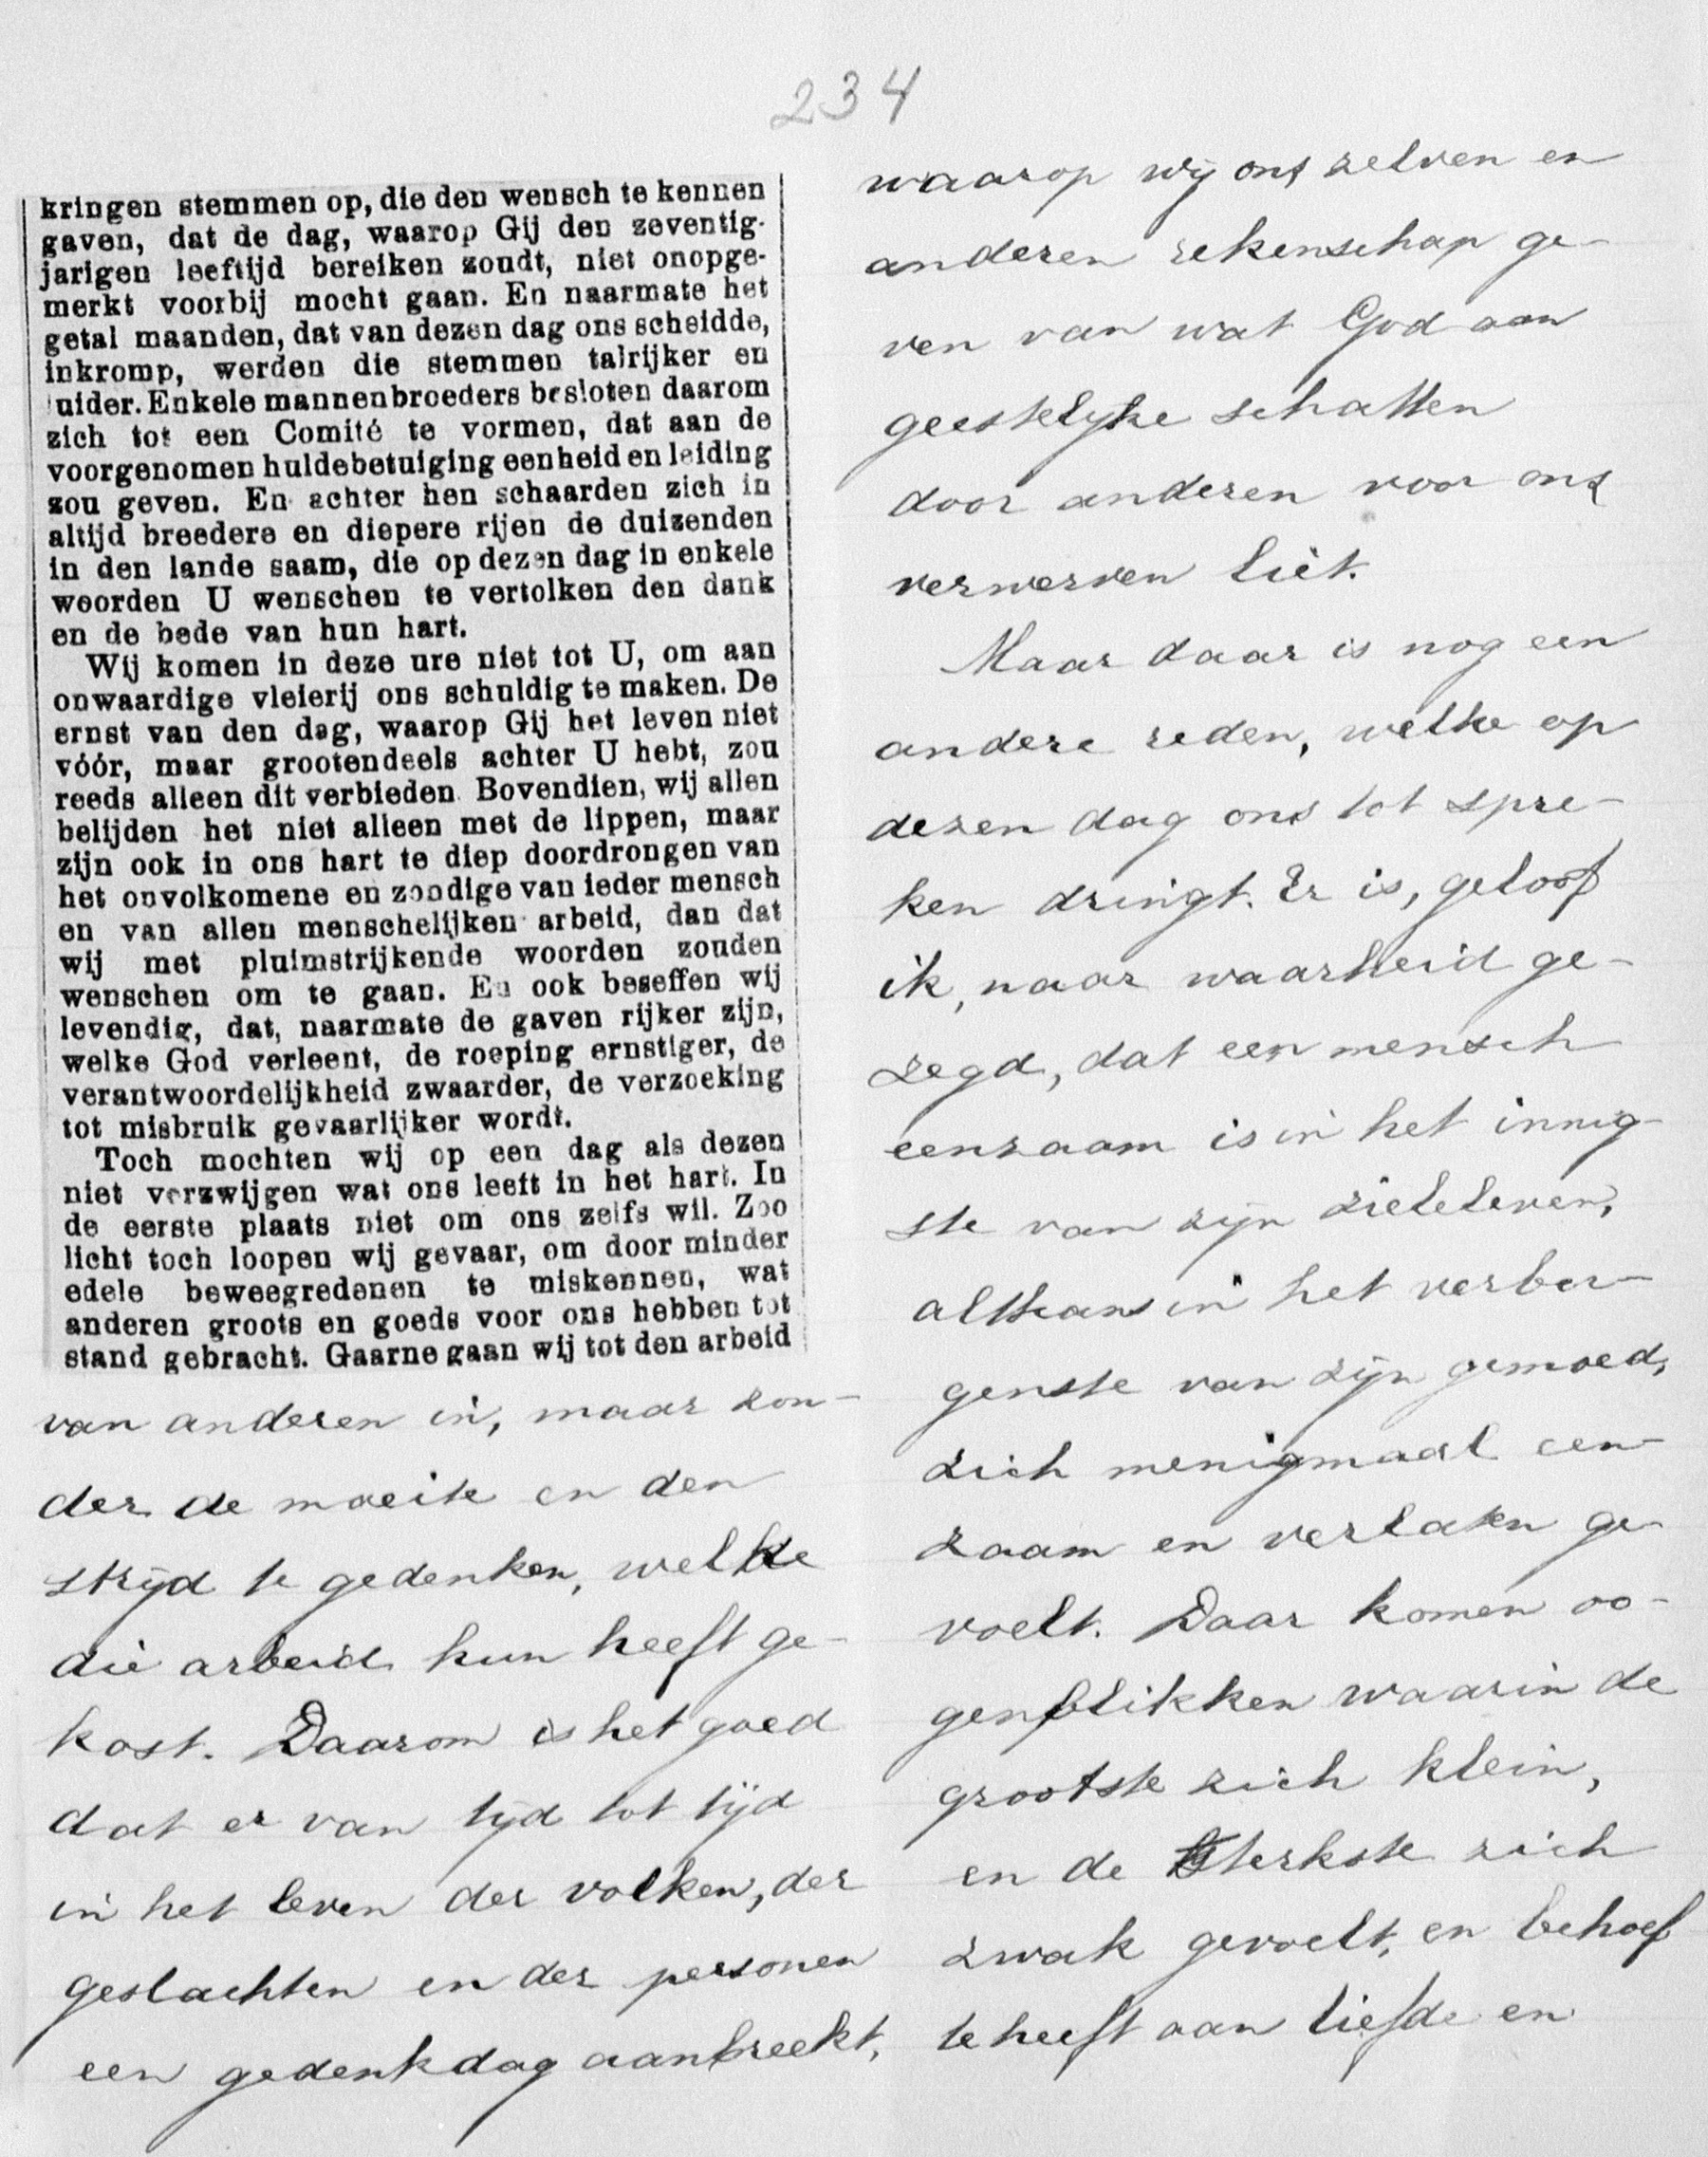 234
kringen stemmen op, die den wensch te kennen
gaven, dat de dag, waarop Gij den zeventig-
jarigen leeftijd bereiken zoudt, niet onopge-
merkt voorbij mocht gaan. En naarmate het
getal maanden, dat van dezen dag ons scheidde,
inkromp, werden die stemmen talrijker en
luider. Enkele mannenbroeders besloten daarom
zich tot een Comité te vormen, dat aan de
voorgenomen huldebetuiging eenheid en leiding
zou geven. En achter hen schaarden zich in
altijd breedere en diepere rijen de duizenden
in den lande saam, die op dezen dag in enkele
woorden U wenschen te vertolken den dank
en de bede van hun hart.
Wij komen in deze ure niet tot U, om aan
onwaardige vleierij ons schuldig te maken. De
ernst van den dag, waarop Gij het leven niet
vóór, maar grootendeels achter U hebt, zou
reeds alleen dit verbieden. Bovendien, wij allen
belijden het niet alleen met de lippen, maar
zijn ook in ons hart te diep doordrongen van
het onvolkomene en zondige van ieder mensch
en van allen menschelijken arbeid, dan dat
wij met pluimstrijkende woorden zouden
wenschen om te gaan. En ook beseffen wij
levendig, dat, naarmate de gaven rijker zijn,
welke God verleent, de roeping ernstiger, de
verantwoordelijkheid zwaarder, de verzoeking
tot misbruik gevaarlijker wordt.
Toch mochten wij op een dag als dezen
niet verzwijgen wat ons leeft in het hart. In
de eerste plaats niet om ons zelfs wil. Zoo
licht toch loopen wij gevaar, om door minder
edele beweegredenen te miskennen, wat
anderen groots en goeds voor ons hebben tot
stand gebracht. Gaarne gaan wij tot den arbeid
van anderen in, maar zon-
der de moeite en den
strijd te gedenken, welke
die arbeid hun heeft ge-
kost. Daarom is het goed
dat er van tijd tot tijd
in het leven der volken, der
geslachten en der personen
een gedenkdag aanbreekt,
waarop wij ons zelven en
anderen rekenschap ge-
ven van wat God aan
geestelijke schatten
door anderen voor ons
verwerven liet.
Maar daar is nog een
andere reden, welke op
dezen dag ons tot spre-
ken dringt. Er is, geloof
ik, naar waarheid ge-
zegd, dat een mensch
eenzaam is in het innig-
ste van zijn zieleleven,
althans in het verbor-
genste van zijn gemoed,
zich menigmaal een-
zaam en verlaten ge-
voelt. Daar komen oo-
genblikken waarin de
grootste zich klein,
en de sterkste zich
zwak gevoelt, en behoef
te heeft aan liefde en